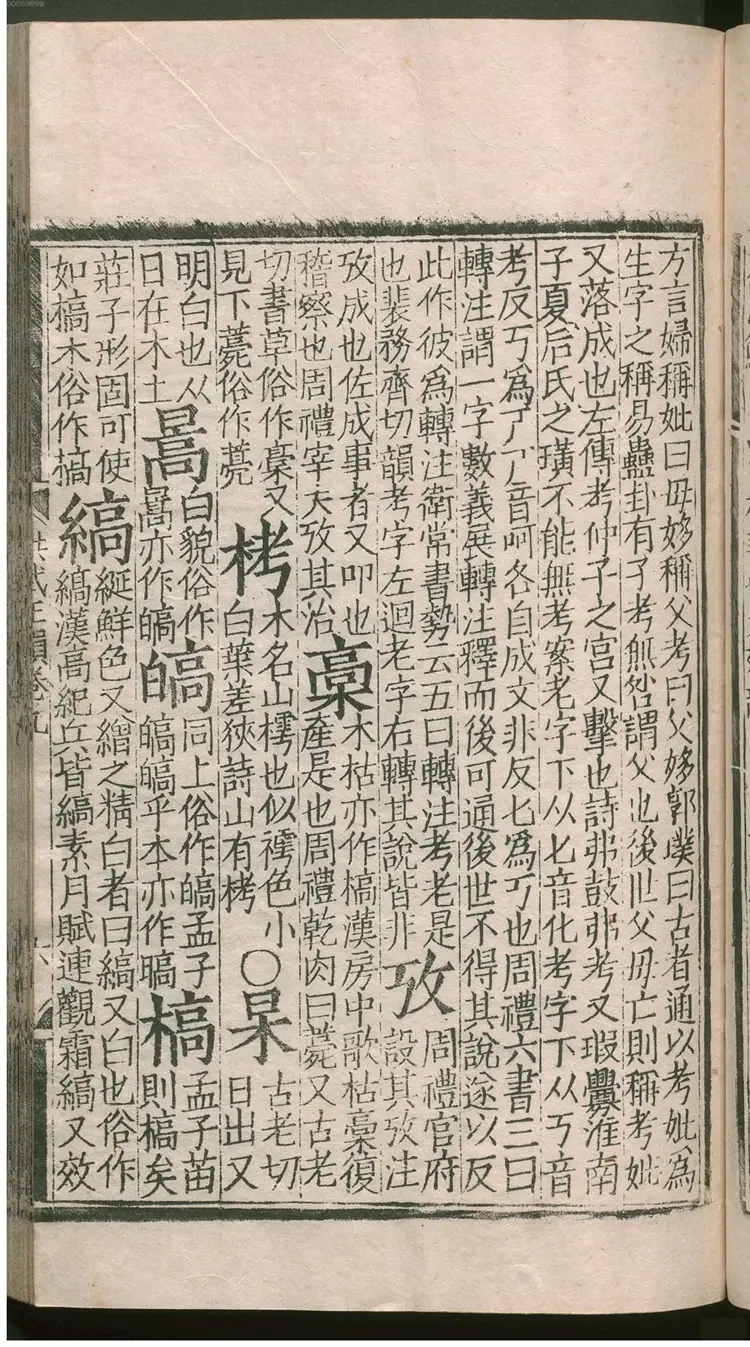 00059899
方言婦稱妣曰母姼稱父考曰父姼郭璞曰古者通以考妣爲
生字之稱易蠱卦有子考無咎謂父也後世父母亡則稱考妣
又落成也左傳考仲子之宮又擊也詩弗鼓弗考又瑕釁淮南
子夏后氏之璜不能無考案老字下从匕音化考字下从丂音
考反丂爲𠀀音呵各自成文非反匕爲丂也周禮六書三曰
轉注謂一字數義展轉注釋而後可通後世不得其說遂以反
此作彼爲轉注衛常書勢云五曰轉注考老是
也裴務齊切韻考字左迴老字右轉其說皆非
攷
周禮官府
設其攷注
攷成也佐成事者又叩也
稽察也周禮宰夫攷其治
槀
木枯亦作槁漢房中歌枯槀復
產是也周禮乾肉曰薧又古老
切書草俗作稾又
見下薨俗作薧
栲
木名山樗也似樗色小
白葉差狹詩山有栲
○
杲
古老切
日出又
明白也从
日在木上
暠
白貌俗作
暠亦作皜
皜
同上俗作皜孟子
皜皜乎本亦作暠
槁
孟子苗
則槁矣
莊子形固可使
如槁木俗作搞
縞
綖鮮色又繒之精白者曰縞又白也俗作
縞漢高紀兵皆縞素月賦連觀霜縞又效
洪武正韻卷九